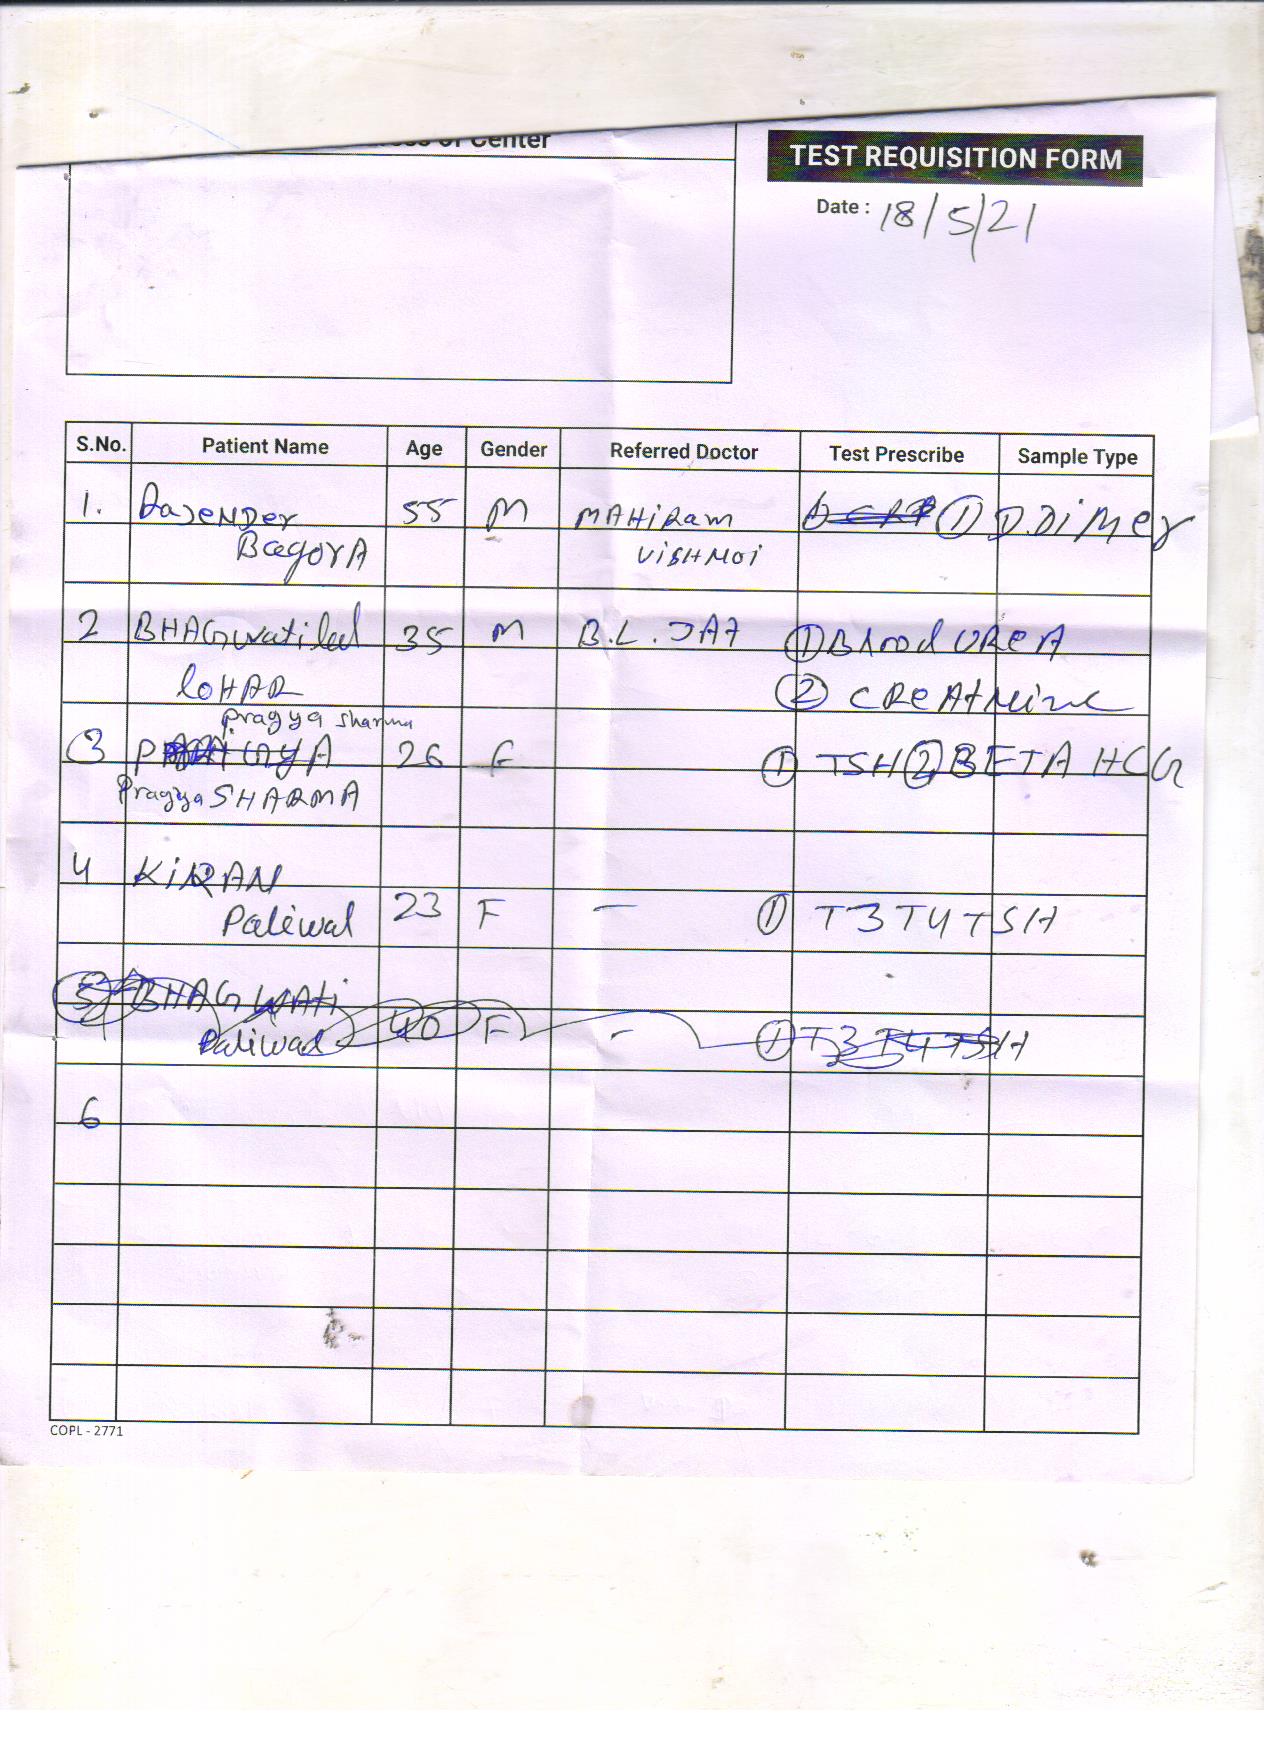 of Center
TEST REQUISITION FORM
Date : 18/5/21
S.No. Patient Name Age Gender Referred Doctor Test Prescribe Sample Type
1. RajeNDer 55 M MAHiRam ① D.DiMer
BagorA ViSHNOi
2 BHAGwatilal 35 M B.L. JAT ① Blood UReA
loHAR ② CReAtNine
pragya sharma
3 26 F ① TSH ② BETA HCG
Pragya SHARMA
4 KiRAN
Paliwal 23 F - ① T3 T4 TSH
5 BHAGWAti
Paliwal 40 F - ① T3 T4 TSH
6
COPL - 2771